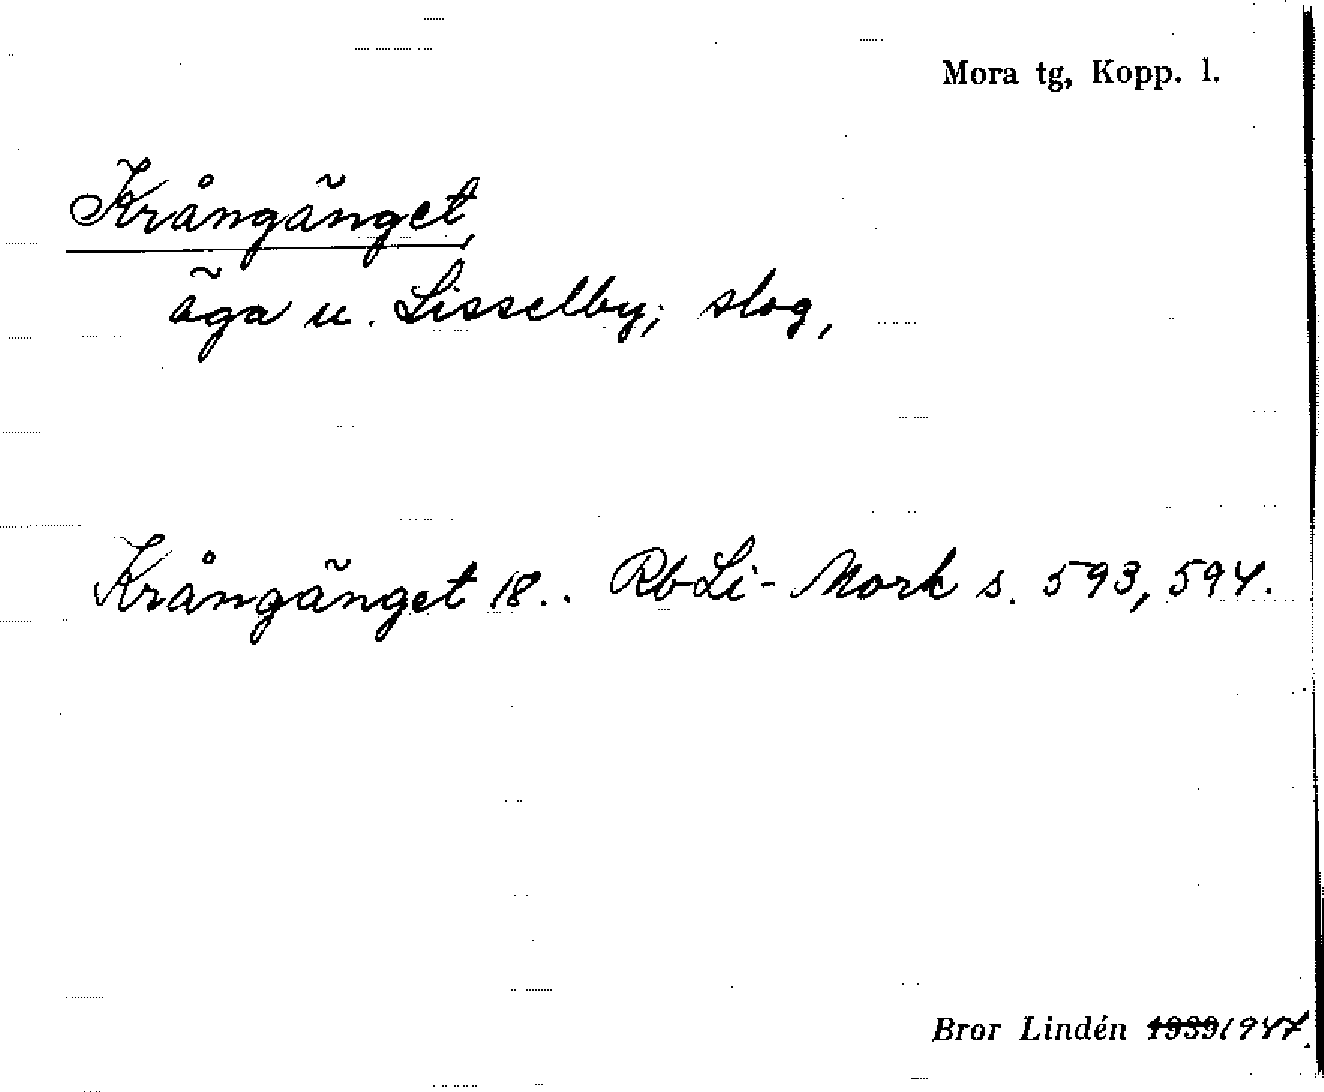 Mora tg, Kopp. l.
Krångänget,
äga u. Lisselby; slog,
Krångänget 18.. Rb Li- Mork s. 593, 594.
Bror Lindén 1939 1944.